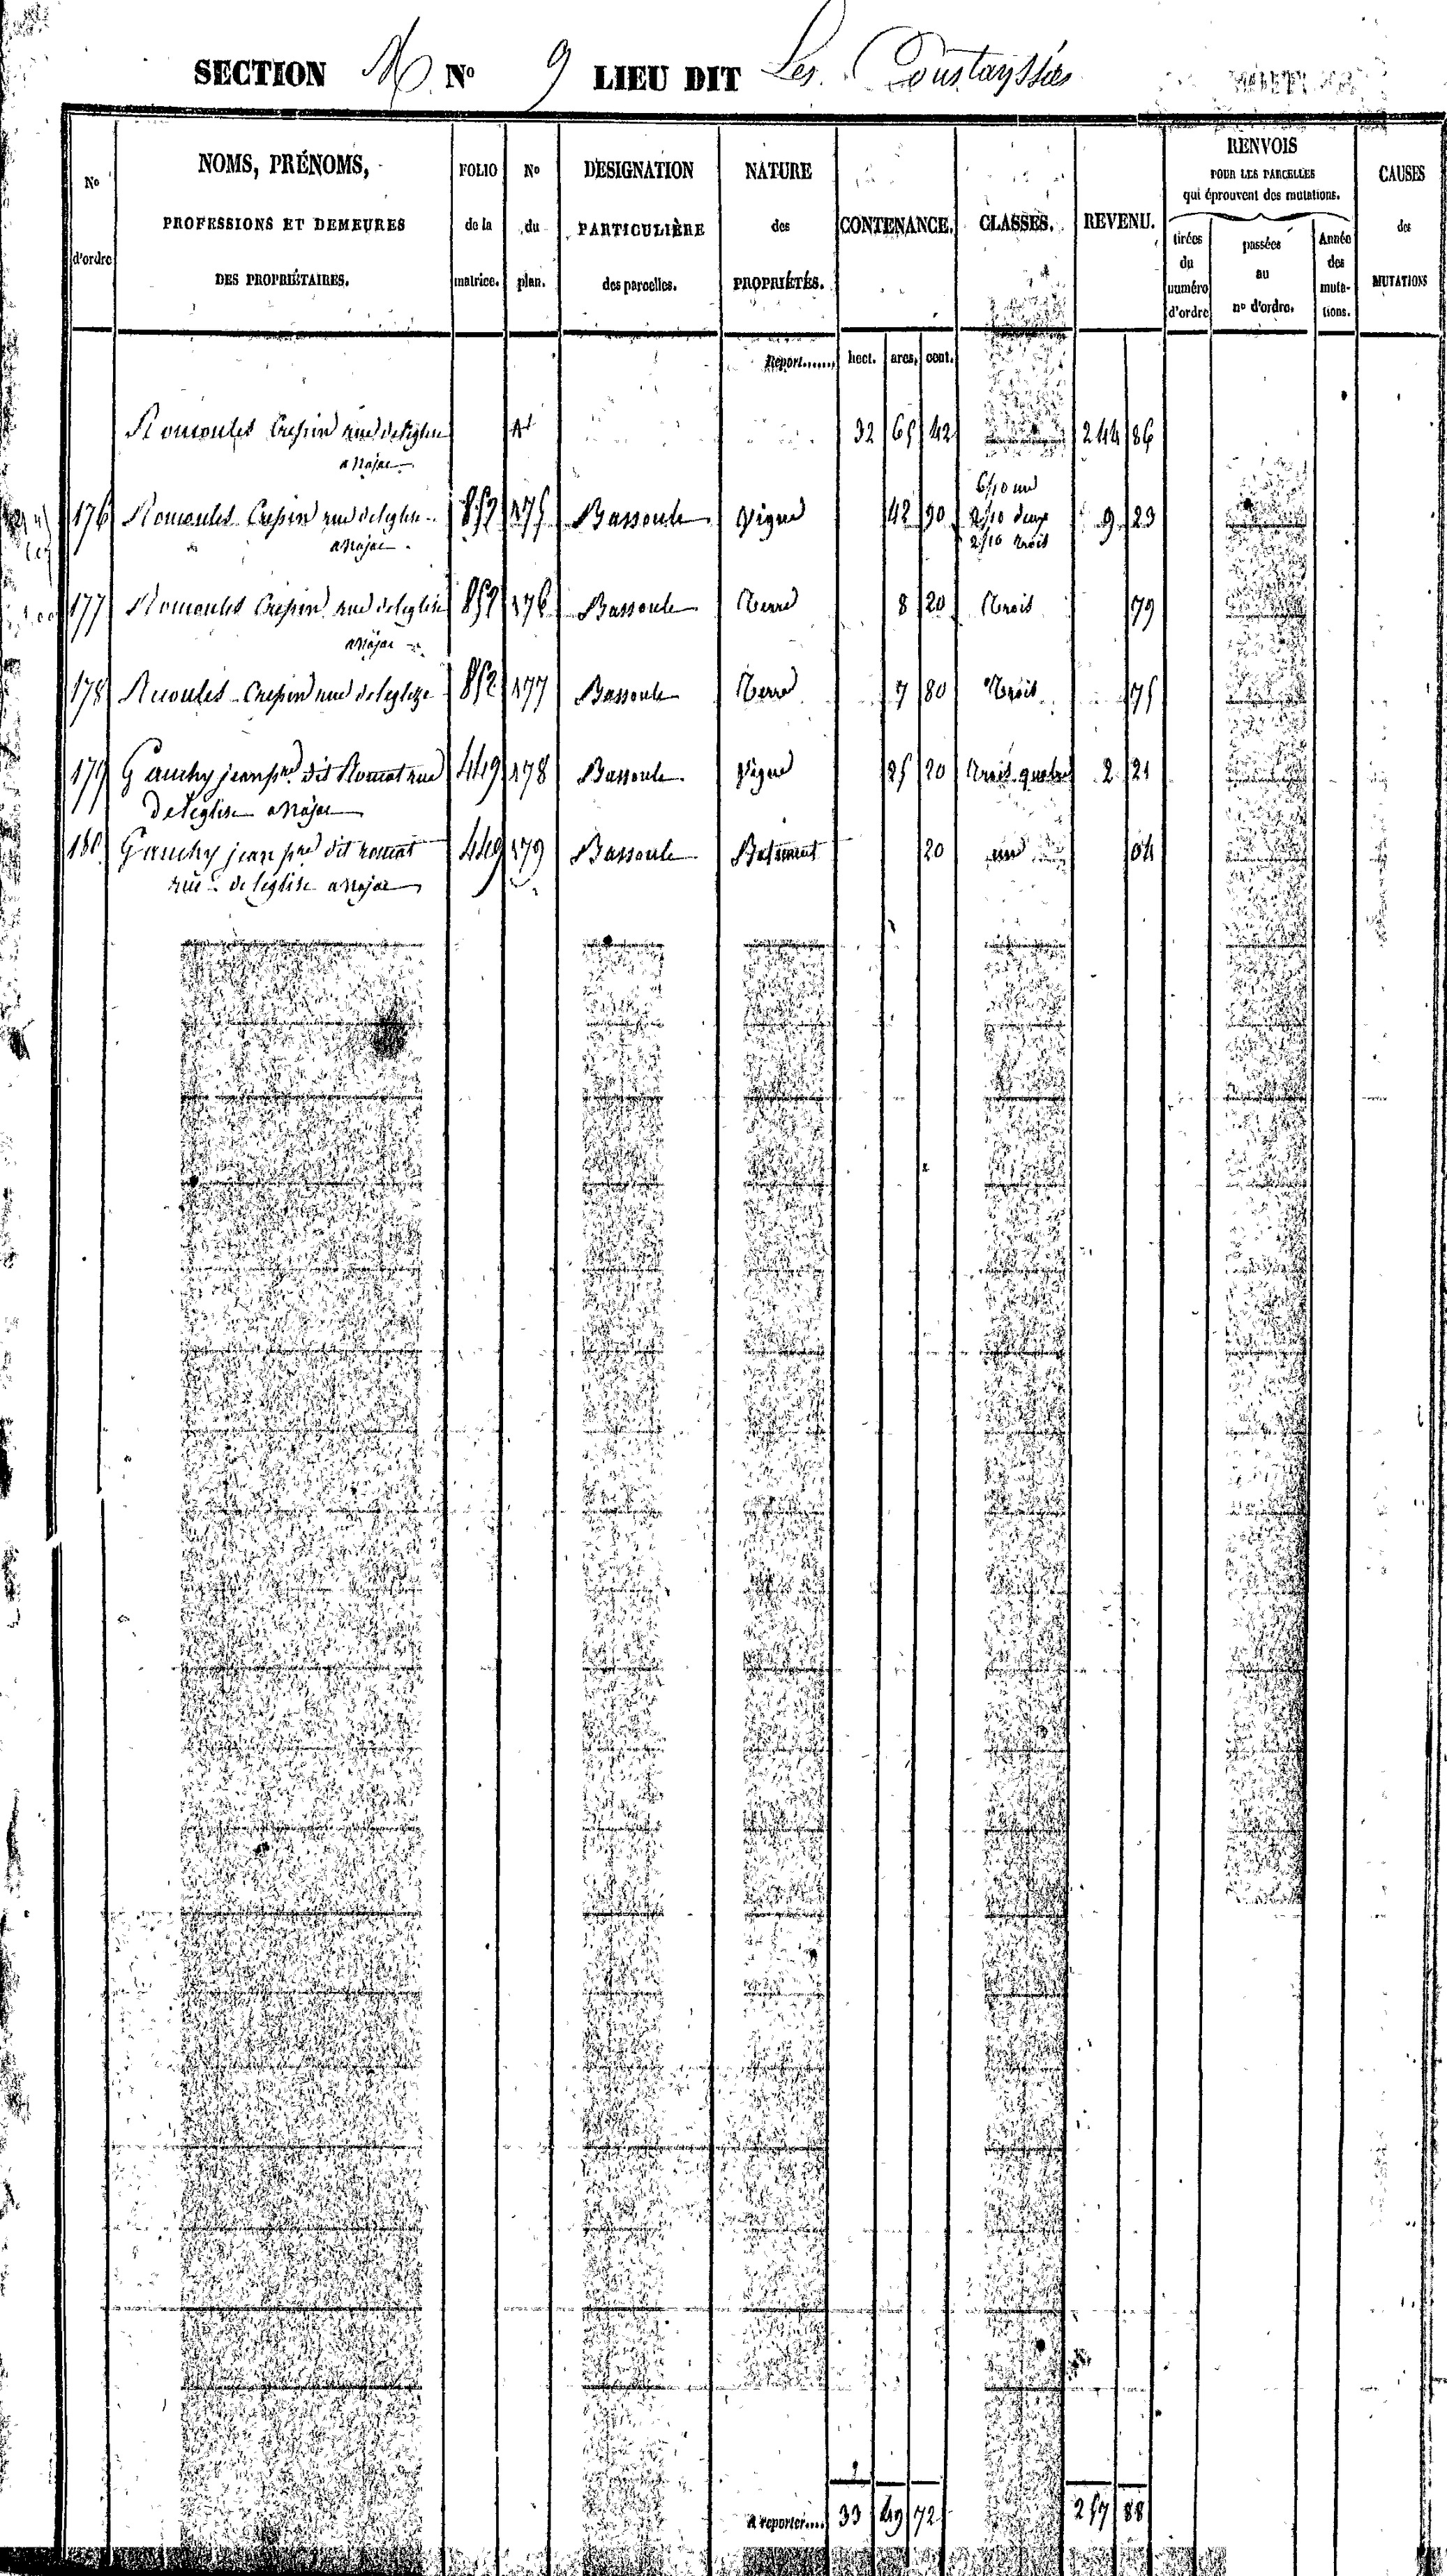 SECTION M Nº 9 LIEU DIT Les Coustaysses
Nº d'ordre
NOMS, PRÉNOMS,
PROFESSIONS ET DEMEURES
DES PROPRIÉTAIRES.
FOLIO
de la
matrice.
Nº
du
plan.
DESIGNATION
PARTICULIÈRE
des parcelles.
NATURE
des
PROPRIÉTÉS.
CONTENANCE.
CLASSES.
REVENU.
RENVOIS
POUR LES PARCELLES
qui éprouvent des mutations.
tirées
du
numéro
d'ordre
passées
au
nº d'ordre.
Année
des
muta-
tions.
CAUSES
des
MUTATIONS
Report...... hect. ares. cent.
Crespin rue deleglise 32 65 42 244 86
a najac
6/10 un
176 Crespin rue deleglise 852 175 Bassoule Vigne 42 90 2/10 deux 9 23
a najac 2/10 trois
177 Crespin rue deleglise 852 176 Bassoule Terre 8 20 trois 79
a najac
178 Crespin rue deleglize 852 177 Bassoule Terre 7 80 trois 75
179 Gauchy jean pre dit Roumat rue 449 178 Bassoule Vigne 25 20 trois quatre 2 21
de l'eglise a Najac
180 Gauchy jean pre dit roumat 449 179 Bassoule Batiment 20 un 04
rue de l'eglise a najac
A reporter.... 33 49 72 257 88